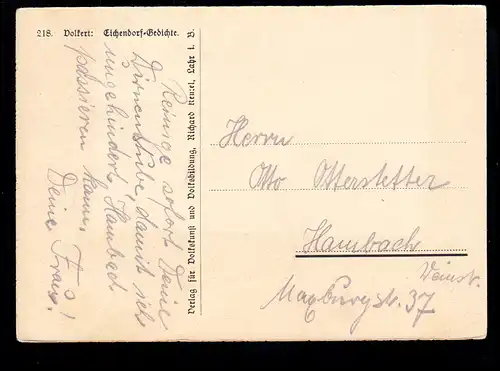 218. Volkert: Eichendorf-Gedichte.
Reinige sofort Deine
Dirnenstube, damit ich
ungehindert Hambach
passieren kann.
Deine Franz!
Verlag für Volkskunst und Volksbildung, Richard Keutel, Lahr i. B.
Herrn
Otto Otterstetter
Hambach
Weinstr.
Maxburgstr. 37